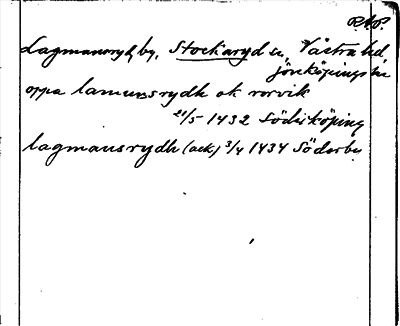 R.A.P.
Lagmansryd, by, Stockaryd sn, Västra hd
Jönköpings län
oppa lamunsrydh ok rørvik
21/5 1432 Söderköping
lagmansrydh (ack) 3/4 1434 Söderby